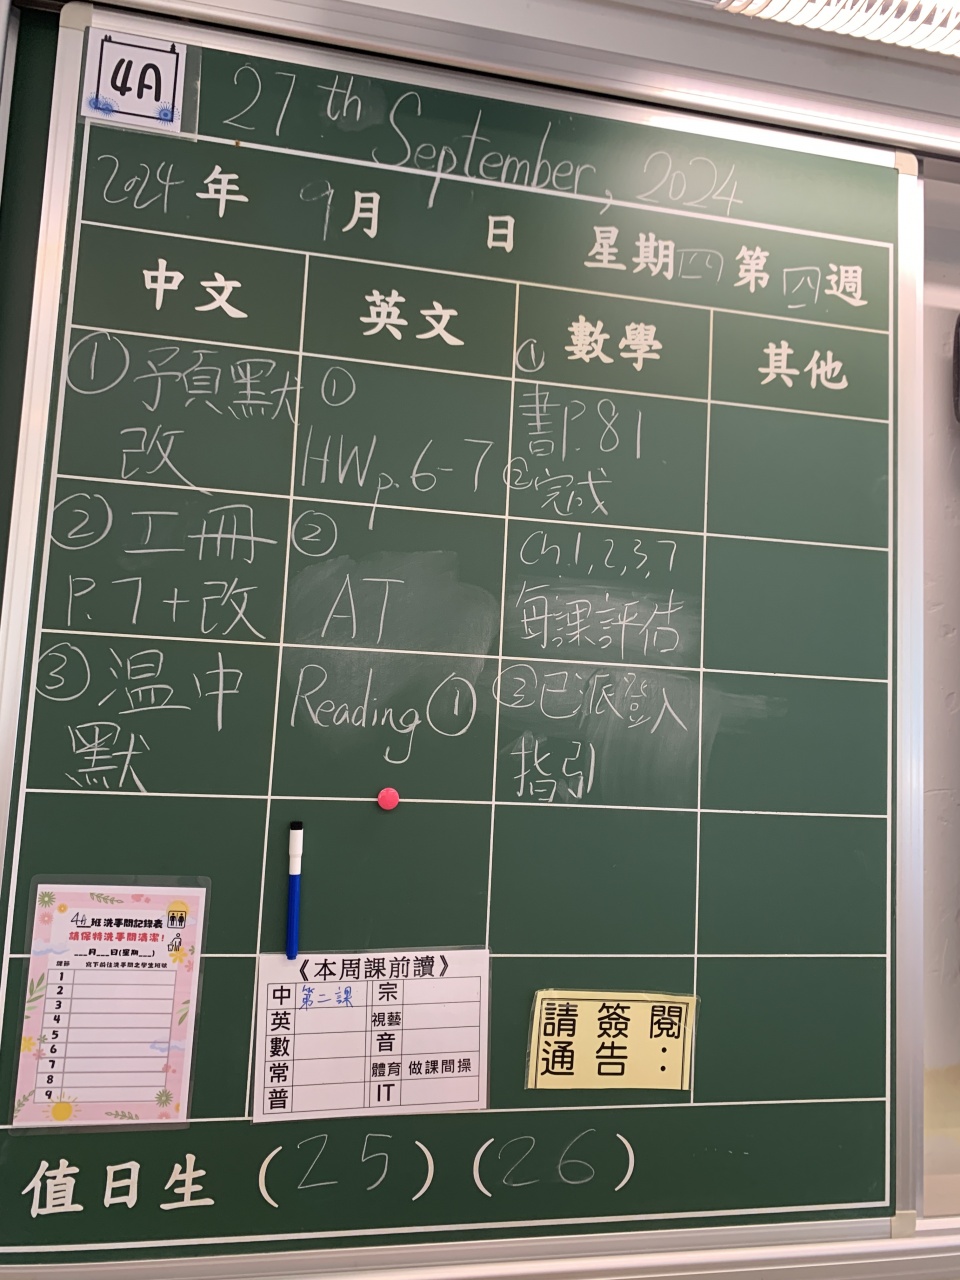 4A
27th September, 2024
2024年 9月 日 星期四 第四週
中文 英文 數學 其他
①預默
改
②工冊
P.7+改
③温中
默
①
HWp.6-7
②
AT
Reading①
①
書P.81
②完成
Ch.1,2,3,7
每課評估
③已派登入
指引
4A班洗手間記錄表
請保持洗手間清潔!
___月___日(星期___)
課節 寫下前往洗手間之學生班號
1
2
3
4
5
6
7
8
9
《本周課前讀》
中 第二課 宗
英 視藝
數 音
常 體育 做課間操
普 IT
請簽閱
通告:
值日生(25)(26)